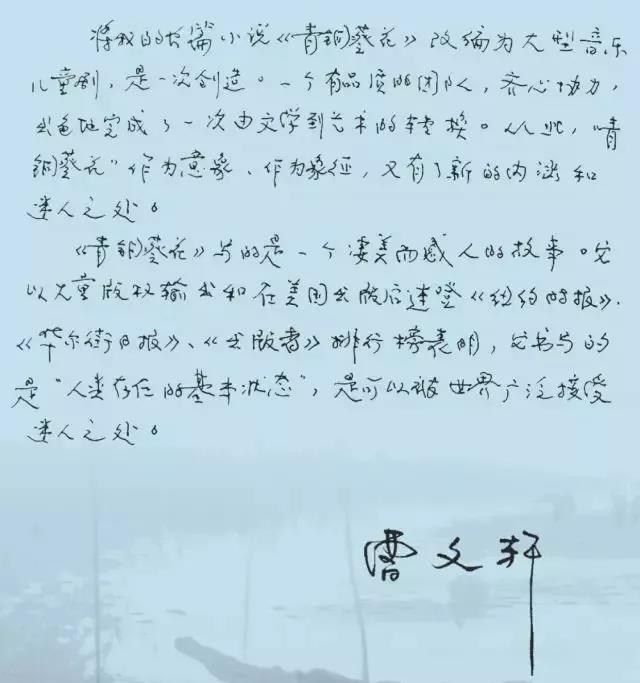 将我的长篇小说《青铜葵花》改编为大型音乐
儿童剧，是一次创造。一个有品质的团队，齐心协力，
出色地完成了一次由文学到艺术的转换。从此，“青
铜葵花”作为意象、作为象征，又有了新的内涵和
迷人之处。
《青铜葵花》写的是一个凄美而感人的故事。它
以大量版权输出和在美国出版后连登《纽约时报》、
《华尔街日报》、《出版者》排行榜表明，此书写的
是“人类存在的基本状态”，是可以被世界广泛接受
迷人之处。
曹文轩